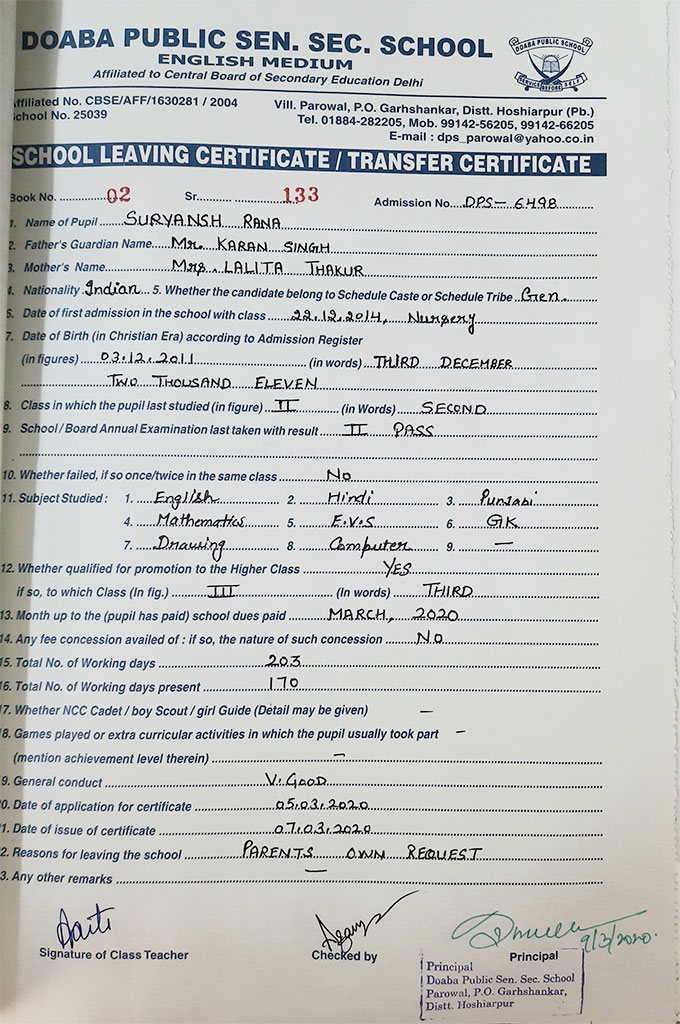 DOABA PUBLIC SEN. SEC. SCHOOL
ENGLISH MEDIUM
Affiliated to Central Board of Secondary Education Delhi
DOABA PUBLIC SCHOOL
SERVICE BEFORE SELF
ffiliated No. CBSE/AFF/1630281 / 2004
chool No. 25039
Vill. Parowal, P.O. Garhshankar, Distt. Hoshiarpur (Pb.)
Tel. 01884-282205, Mob. 99142-56205, 99142-66205
E-mail : dps_parowal@yahoo.co.in
SCHOOL LEAVING CERTIFICATE / TRANSFER CERTIFICATE
Book No. 02 Sr. 133 Admission No. DPS-6498
1. Name of Pupil SURYANSH RANA
2. Father's Guardian Name Mr. KARAN SINGH
3. Mother's Name Mrs. LALITA THAKUR
4. Nationality Indian 5. Whether the candidate belong to Schedule Caste or Schedule Tribe Gen.
6. Date of first admission in the school with class 22.12.2014, Nursery
7. Date of Birth (in Christian Era) according to Admission Register
(in figures) 03.12.2011 (in words) THIRD DECEMBER
TWO THOUSAND ELEVEN
8. Class in which the pupil last studied (in figure) II (in Words) SECOND
9. School / Board Annual Examination last taken with result II PASS
10. Whether failed, if so once/twice in the same class No
11. Subject Studied : 1. English 2. Hindi 3. Punjabi
4. Mathematics 5. E.V.S 6. GK
7. Drawing 8. Computer 9. —
12. Whether qualified for promotion to the Higher Class YES
if so, to which Class (In fig.) III (In Words) THIRD
13. Month up to the (pupil has paid) school dues paid MARCH, 2020
14. Any fee concession availed of : if so, the nature of such concession No
15. Total No. of Working days 203
16. Total No. of Working days present 170
17. Whether NCC Cadet / boy Scout / girl Guide (Detail may be given) —
8. Games played or extra curricular activities in which the pupil usually took part —
(mention achievement level therein) —
9. General conduct V. GOOD
0. Date of application for certificate 05.03.2020
1. Date of issue of certificate 07.03.2020
2. Reasons for leaving the school PARENTS OWN REQUEST
3. Any other remarks —
9/3/2020.
Signature of Class Teacher Checked by Principal
Principal
Doaba Public Sen. Sec. School
Parowal, P.O. Garhshankar,
Distt. Hoshiarpur